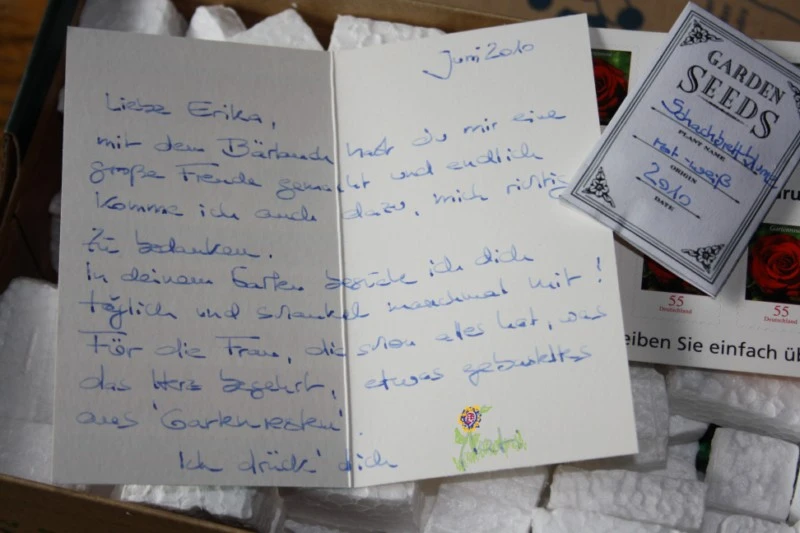 Juni 2010
Liebe Erika,
mit dem Bärlauch hast du mir eine
große Freude gemacht und endlich
komme ich auch dazu, mich richtig
zu bedanken.
In deinem Garten besuche ich dich
täglich und schaukel manchmal mit!
Für die Frau, die schon alles hat, was
das Herz begehrt, etwas gebasteltes
aus 'Gartenresten'.
Ich drück' dich
GARDEN
SEEDS
Schachbrettblume
PLANT NAME
rot-weiß
ORIGIN
2010
DATE
55
Deutschland
55
Deutschland
eiben Sie einfach üb